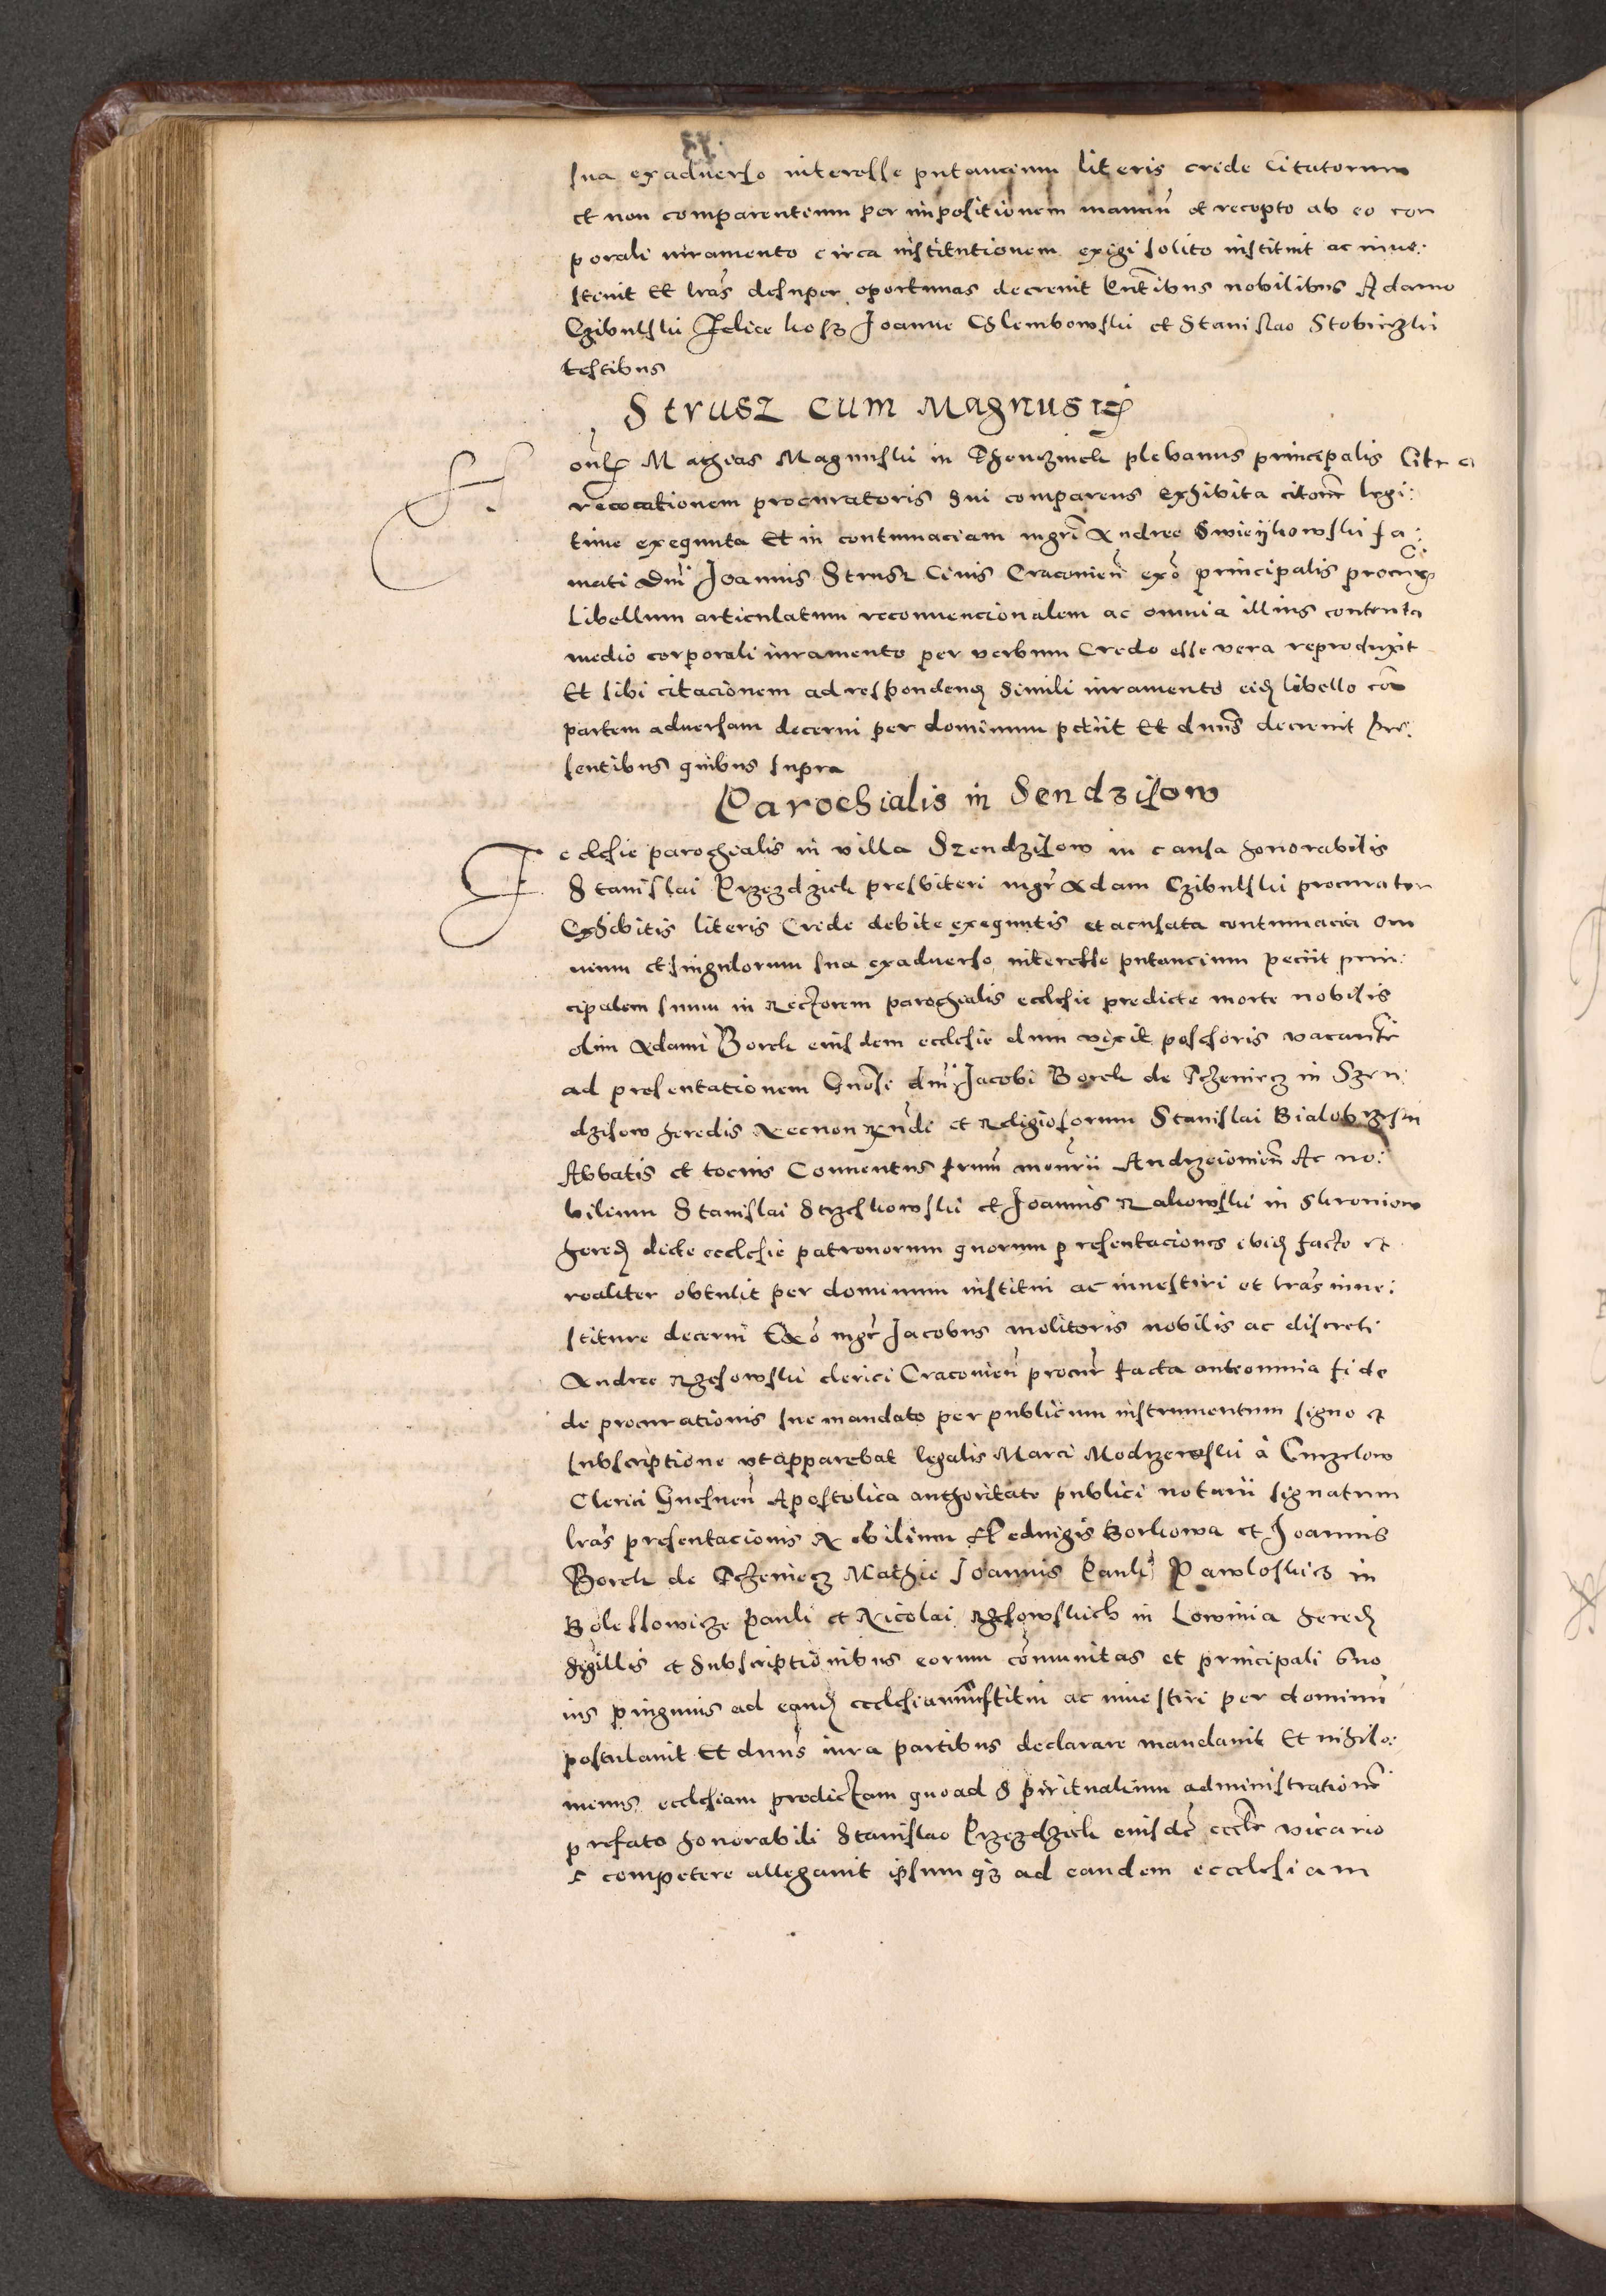 sua exadverso interesse putancium literis cride Citatorum
et non comparentium per impositionem manuū et recepto ab eo cor
porali iuramento circa institutionem exigi solito instituit ac inve:
stivit Et lrās desuper oportunas decrevit Pntībus nobilibus Adamo
Czibulski Felice Joanne Chlembowski et Stanislao
testibus
Strusz cum Magnuski
Mathias Magnuski in plebanus principalis Citra
revocationem procuratoris sui comparens Exhibita citonē legi:
time exequuta Et in contumaciam mgrī Andree Swieijkowski fa:
mati Dnī Joannis Strusz Civis Cracovien̄ exō principalis procurīs
Libellum articulatum reconvencionalem ac omnia illius contenta
medio corporali iuramento per verbum Credo esse vera reproduxit
Et sibi citacionem ad respondenḍ Simili iuramento eiḍ libello con̄
partem adversam decerni per dominum petiit Et dnus decrevit Pre:
sentibus quibus supra
Parochialis in Sendzisow
Ecclesie parochialis in villa Szendzisow in causa honorabilis
Stanislai Przezdzick presbiteri mgr̄ Adam Czibulski procurator
Exhibitis literis Cride debite exequutis et acusata contumacia om
nium et singulorum sua exadverso interesse putancium peciit prin:
cipalem suum in Rectorem parochialis ecclesie predicte morte nobilis
olim Adami Borek eiusdem ecclesie dum vixit possessoris vacantē
ad presentationem Gnōsi dnī Jacobi Borek de Trzeniecz in Szen:
dzisow heredis Necnon Rndi et Religiosorum Stanislai Bialobrzeski
Abbatis et tocius Conventus frum monrii Andrzeiovien̄ Ac no:
bilium Stanislai Strzeskowski et Joannis Rakowski in Skroniow
hereḍ dicte ecclesie patronorum quorum presentaciones ibiḍ facto et
realiter obtulit per dominum institui ac investiri et lrās inve:
stiture decerni Exō mgr̄ Jacobus molitoris nobilis ac discreti
Andree Rzesowski clerici Cracovien̄ procur̄ facta anteomnia fide
de procurationis sue mandato per publicum instrumentum signo et
subscriptione ut apparebat legalis Marci Modrzewski à Curzelow
Clerici Gnesnen̄ Apostolica authoritate publici notarii signatum
lrās presentacionis Nobilium Hedvigis Borkowa et Joannis
Borek de Trzeniecz Mathie Joannis Pauli Pawloskich in
Boleslowicze Pauli et Nicolai Rzesowskich in Lowinia hereḍ
sigillis et subscriptionibus eorum cōmunitas et principali suo
ius pinguius ad eanḍ ecclesiam institui ac investiri per dominū
postulavit Et dnus iura partibus declarare mandavit Et nihilo:
minus ecclesiam predictam quoad Spiritualium administrationē
prefato honorabili Stanislao Przezdzick eiusdē eccle vicario
competere allegavit ipsumqz ad eandem ecclesiam